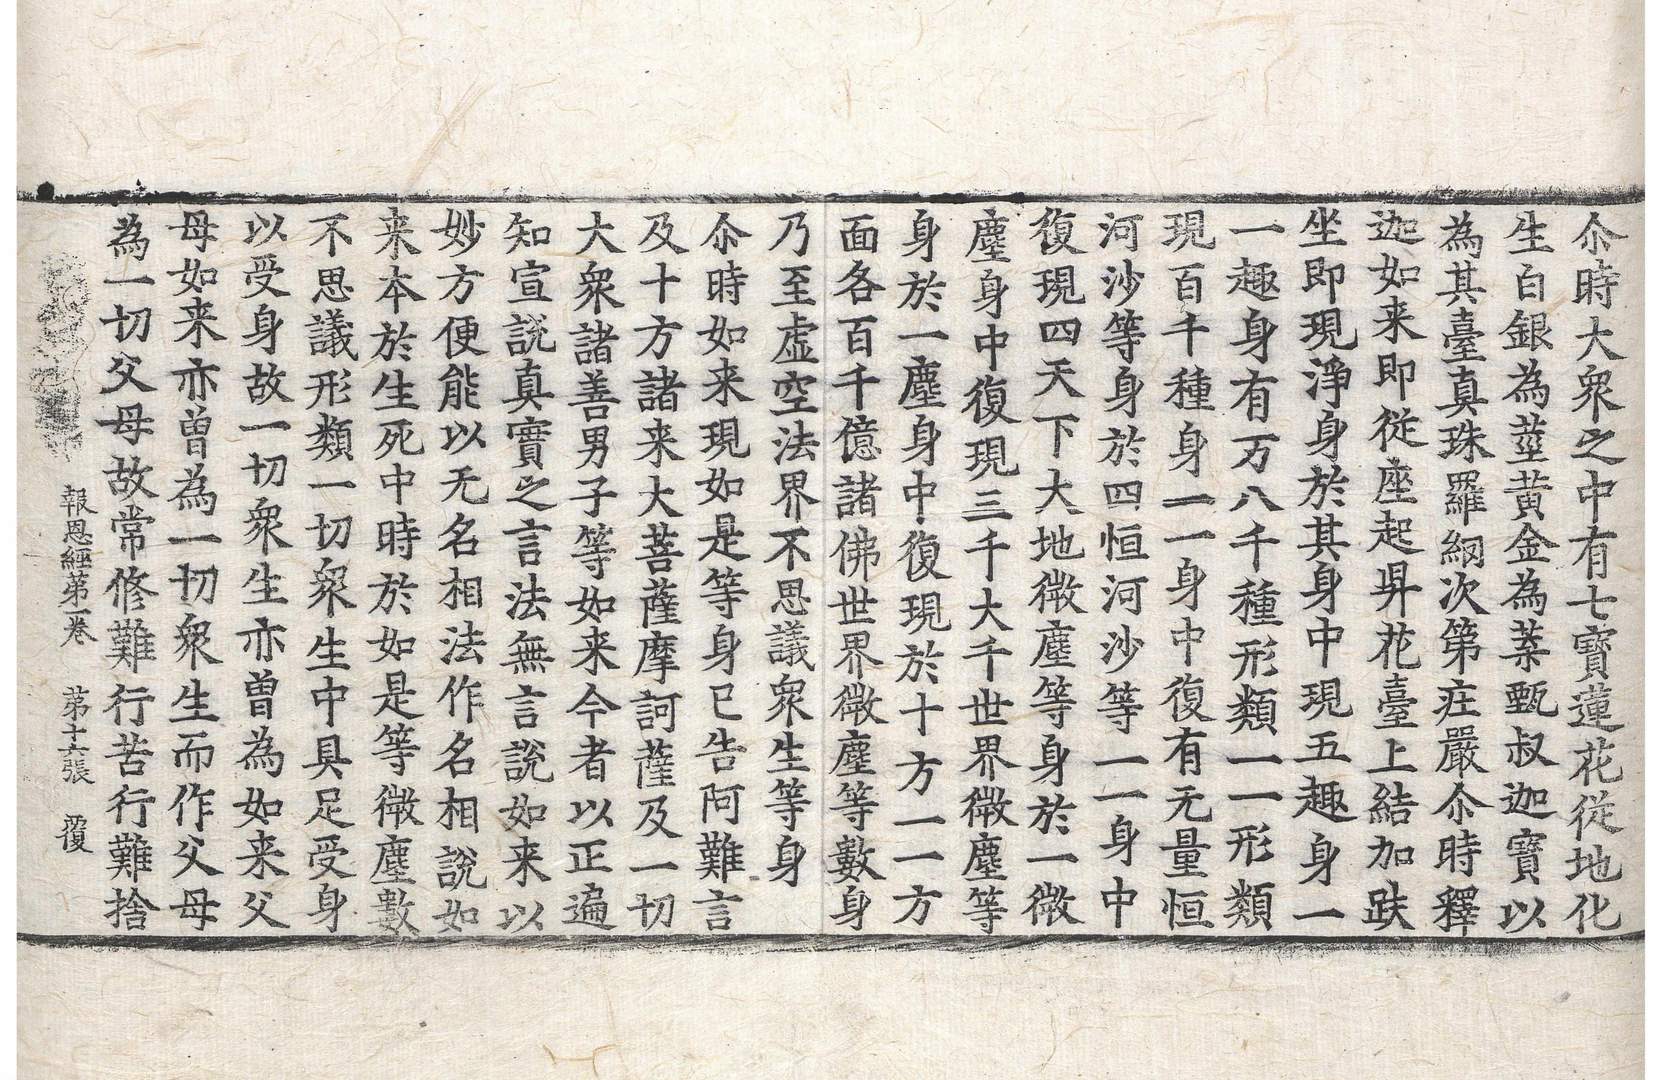 尒時大衆之中有七寶蓮花從地化
生白銀為莖黃金為葉甄叔迦寶以
為其臺真珠羅網次第庄嚴尒時釋
迦如来即從座起昇花臺上結加趺
坐即現淨身於其身中現五趣身一
一趣身有万八千種形類一一形類
現百千種身一一身中復有无量恒
河沙等身於四恒河沙等一一身中
復現四天下大地微塵等身於一微
塵身中復現三千大千世界微塵等
身於一塵身中復現於十方一一方
面各百千億諸佛世界微塵等數身
乃至虛空法界不思議衆生等身
尒時如来現如是等身已告阿難言
及十方諸来大菩薩摩訶薩及一切
大衆諸善男子等如来今者以正遍
知宣說真實之言法無言說如来以
妙方便能以无名相法作名相說如
来本於生死中時於如是等微塵數
不思議形類一切衆生中具足受身
以受身故一切衆生亦曾為如来父
母如来亦曾為一切衆生而作父母
為一切父母故常修難行苦行難捨
報恩經第一卷 第十六張 覆